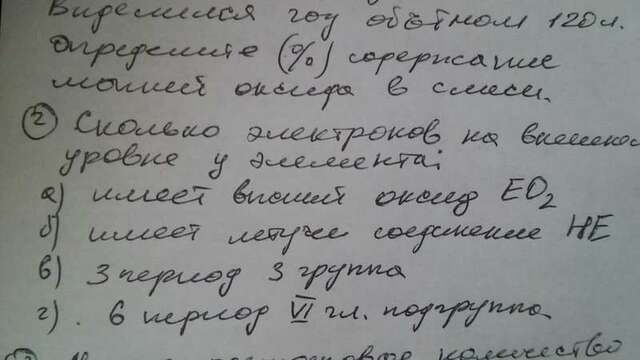 Выделился газ объёмом 120 л.
Определите (%) содержание
оксида в смеси.
② Сколько электронов на внешнем
уровне у элемента:
а) имеет высший оксид ЕО₂
б) имеет летучее соединение НЕ
в) 3 период 3 группа
г) . 6 период VI гл. подгруппа
количество